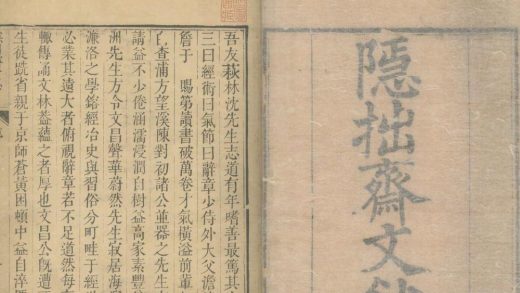 吾友萩林沈先生志道有年嗜善最篤其
三曰經術曰氣節曰辭章少侍外大父澹
詹于 賜第讀書破萬卷才氣橫溢前輩
查浦方望溪陳對初諸公並器之先生
請益不少倦涵濡浸潤自樹益高家素豐
洲先生方令文昌聲華蔚然先生寂居海
濂洛之學鎔經冶史與習俗分町畦于經
必業其遠大者俯視辭章若不足道然每
輒傳誦文林葢蘊之者厚也文昌公旣遭
生徒跣省親于京師蒼黃困頓中益自淬
隱拙齋文鈔